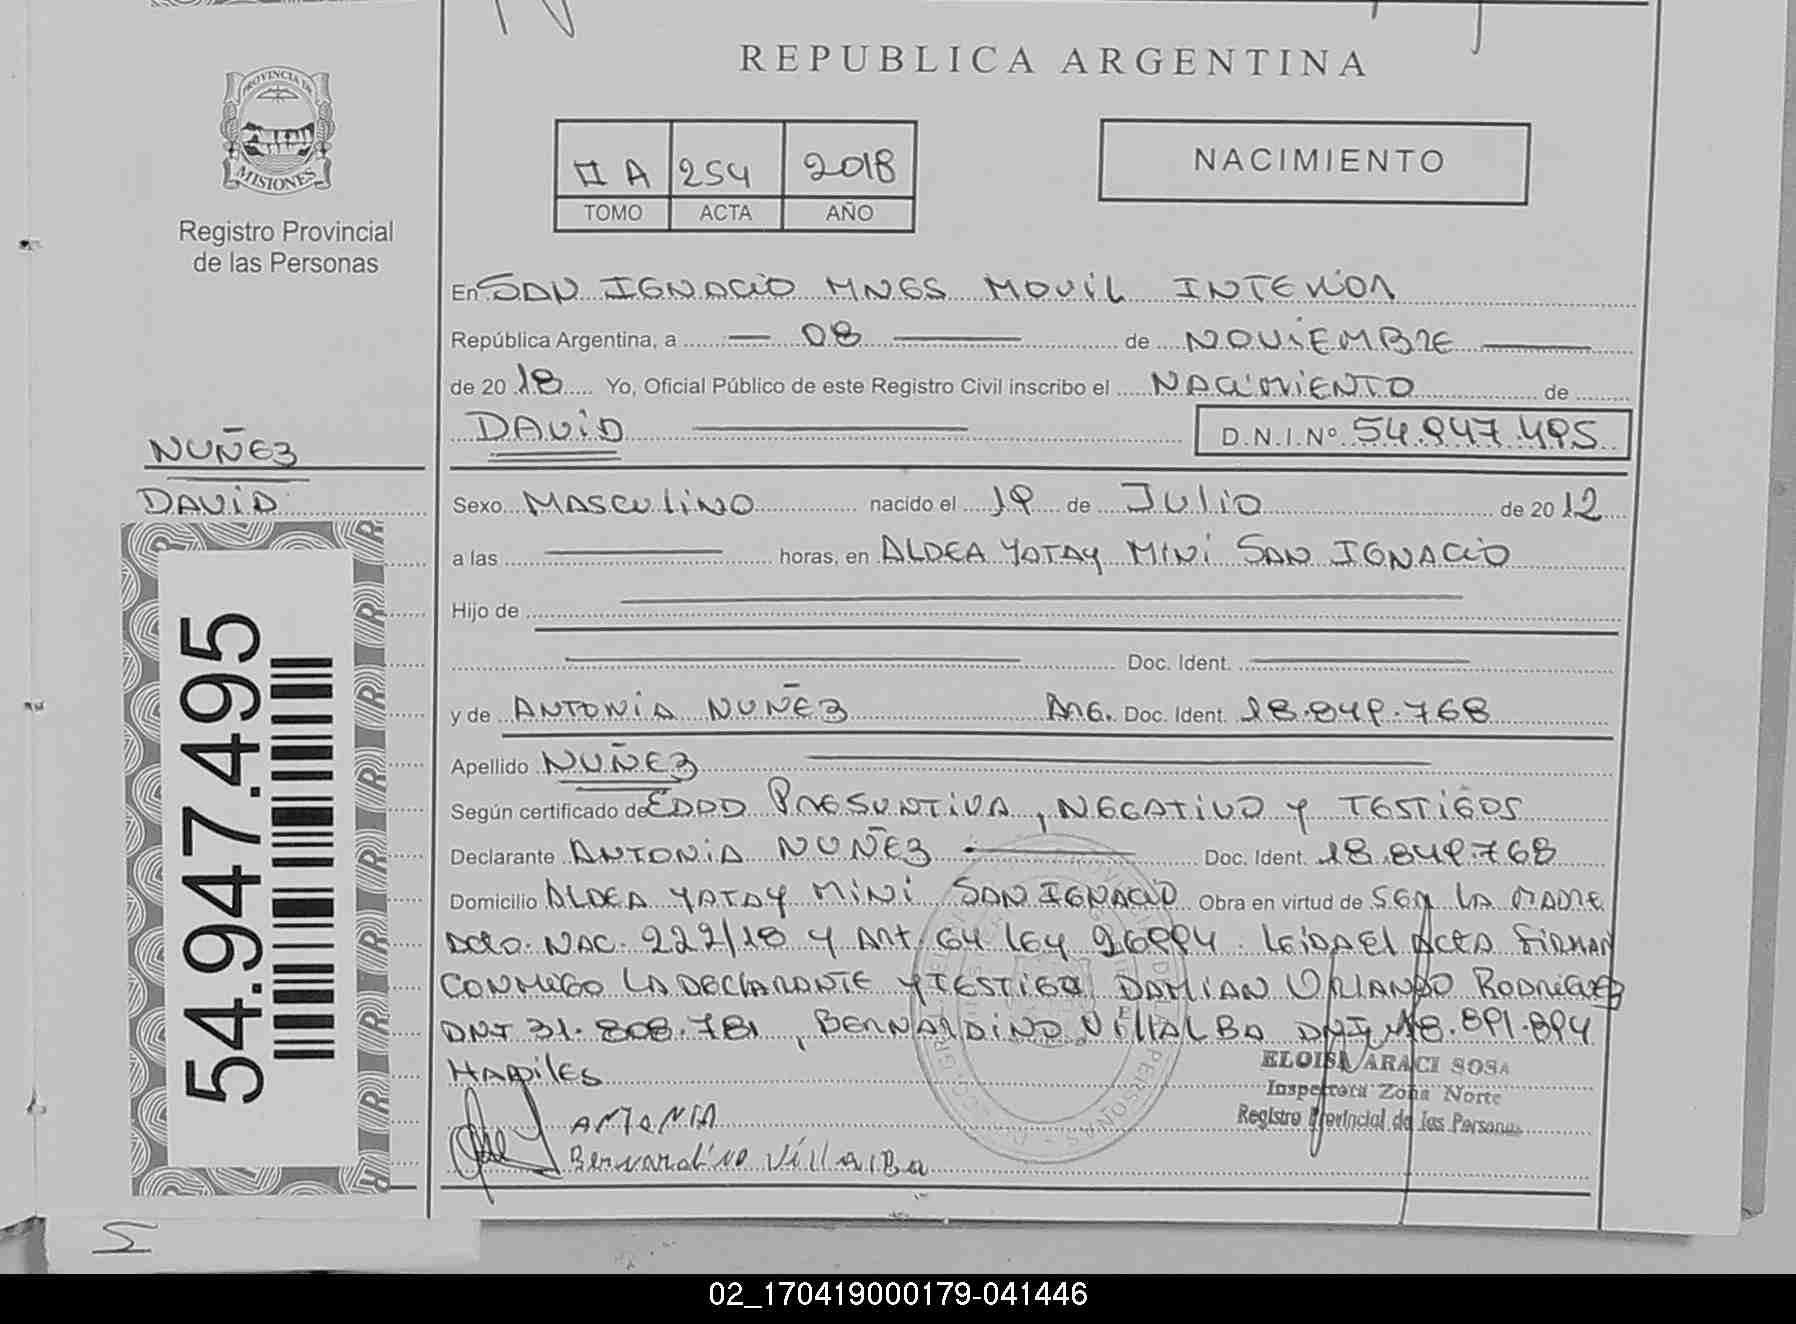 REPUBLICA ARGENTINA
PROVINCIA DE
MISIONES
Registro Provincial
de las Personas
II A 254 2018
TOMO ACTA AÑO
NACIMIENTO
En SAN IGNACIO MNES MOVIL INTERIOR
República Argentina, a — 08 — de NOVIEMBRE —
de 20 18 Yo, Oficial Público de este Registro Civil inscribo el NACIMIENTO de
DAVID — D.N.I.Nº 54.947.495
NUÑEZ
DAVID
54.947.495
Sexo MASCULINO nacido el 19 de JULIO de 20 12
a las — horas, en ALDEA YATAY MINI SAN IGNACIO
Hijo de —
— Doc. Ident. —
y de ANTONIA NUÑEZ ARG. Doc. Ident. 18.849.768
Apellido NUÑEZ —
Según certificado de EDAD PRESUNTIVA, NEGATIVO Y TESTIGOS
Declarante ANTONIA NUÑEZ — Doc. Ident. 18.849.768
Domicilio ALDEA YATAY MINI SAN IGNACIO Obra en virtud de SER LA MADRE
DCRO. NAC. 222/18 Y ART. 64 LEY 26994. LEIDA EL ACTA FIRMAN
CONMIGO LA DECLARANTE Y TESTIGO DAMIAN ORLANDO RODRIGUEZ
DNI 31.808.781, BERNARDINO VILLALBA DNI 18.891.894
HABILES
ELOISA ARACI SOSA
Inspectora Zona Norte
Registro Provincial de las Personas
ANTONIA
Bernardino Villalba
02_170419000179-041446